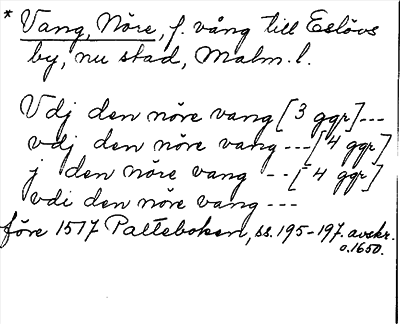 * Vang, Nöre, f. vång till Eslövs
by, nu stad, Malm. l.
Vdj den nöre vang [3 ggr] ---
vdj den nöre vang --- [4 ggr]
j den nöre vang -- [4 ggr]
vdi den nöre vang ---
före 1517 Palteboken, ss. 195-197. avskr.
o. 1650.